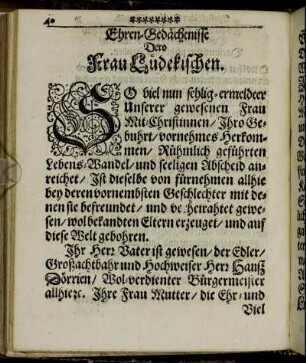 40
********
Ehren-Gedächtnisse
Dero
Frau Lüdekischen.
SO viel nun sehlig-ermeldter
Unserer gewesenen Frau
Mit-Christinnen / Ihro Ge-
buhrt / vornehmes Herkom-
men / Rühmlich geführten
Lebens-Wandel / und seeligen Abscheid an-
reichet / Ist dieselbe von fürnehmen allhie
bey deren vornembsten Geschlechter mit de-
nen sie befreundet / und ve heirahtet gewe-
sen / wol bekandten Eltern erzeuget / und auf
diese Welt gebohren.
Ihr Herr Vater ist gewesen / der Edler /
Großachtbahr und Hochweiser Herr Hanß
Dörrien / Wol verdienter Bürgermeister
allhie ꝛc. Ihre Frau Mutter / die Ehr- und
Viel